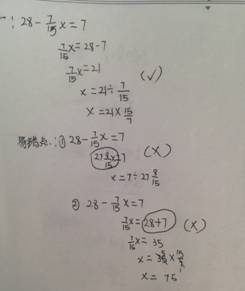 一: 28 - 7/15 x = 7
7/15 x = 28 - 7
7/15 x = 21 (√)
x = 21 ÷ 7/15
x = 21 × 15/7
易错点: ① 28 - 7/15 x = 7
27 8/15 x = 7 (×)
x = 7 ÷ 27 8/15
② 28 - 7/15 x = 7
7/15 x = 28 + 7 (×)
7/15 x = 35
x = 35 × 15/7
x = 75